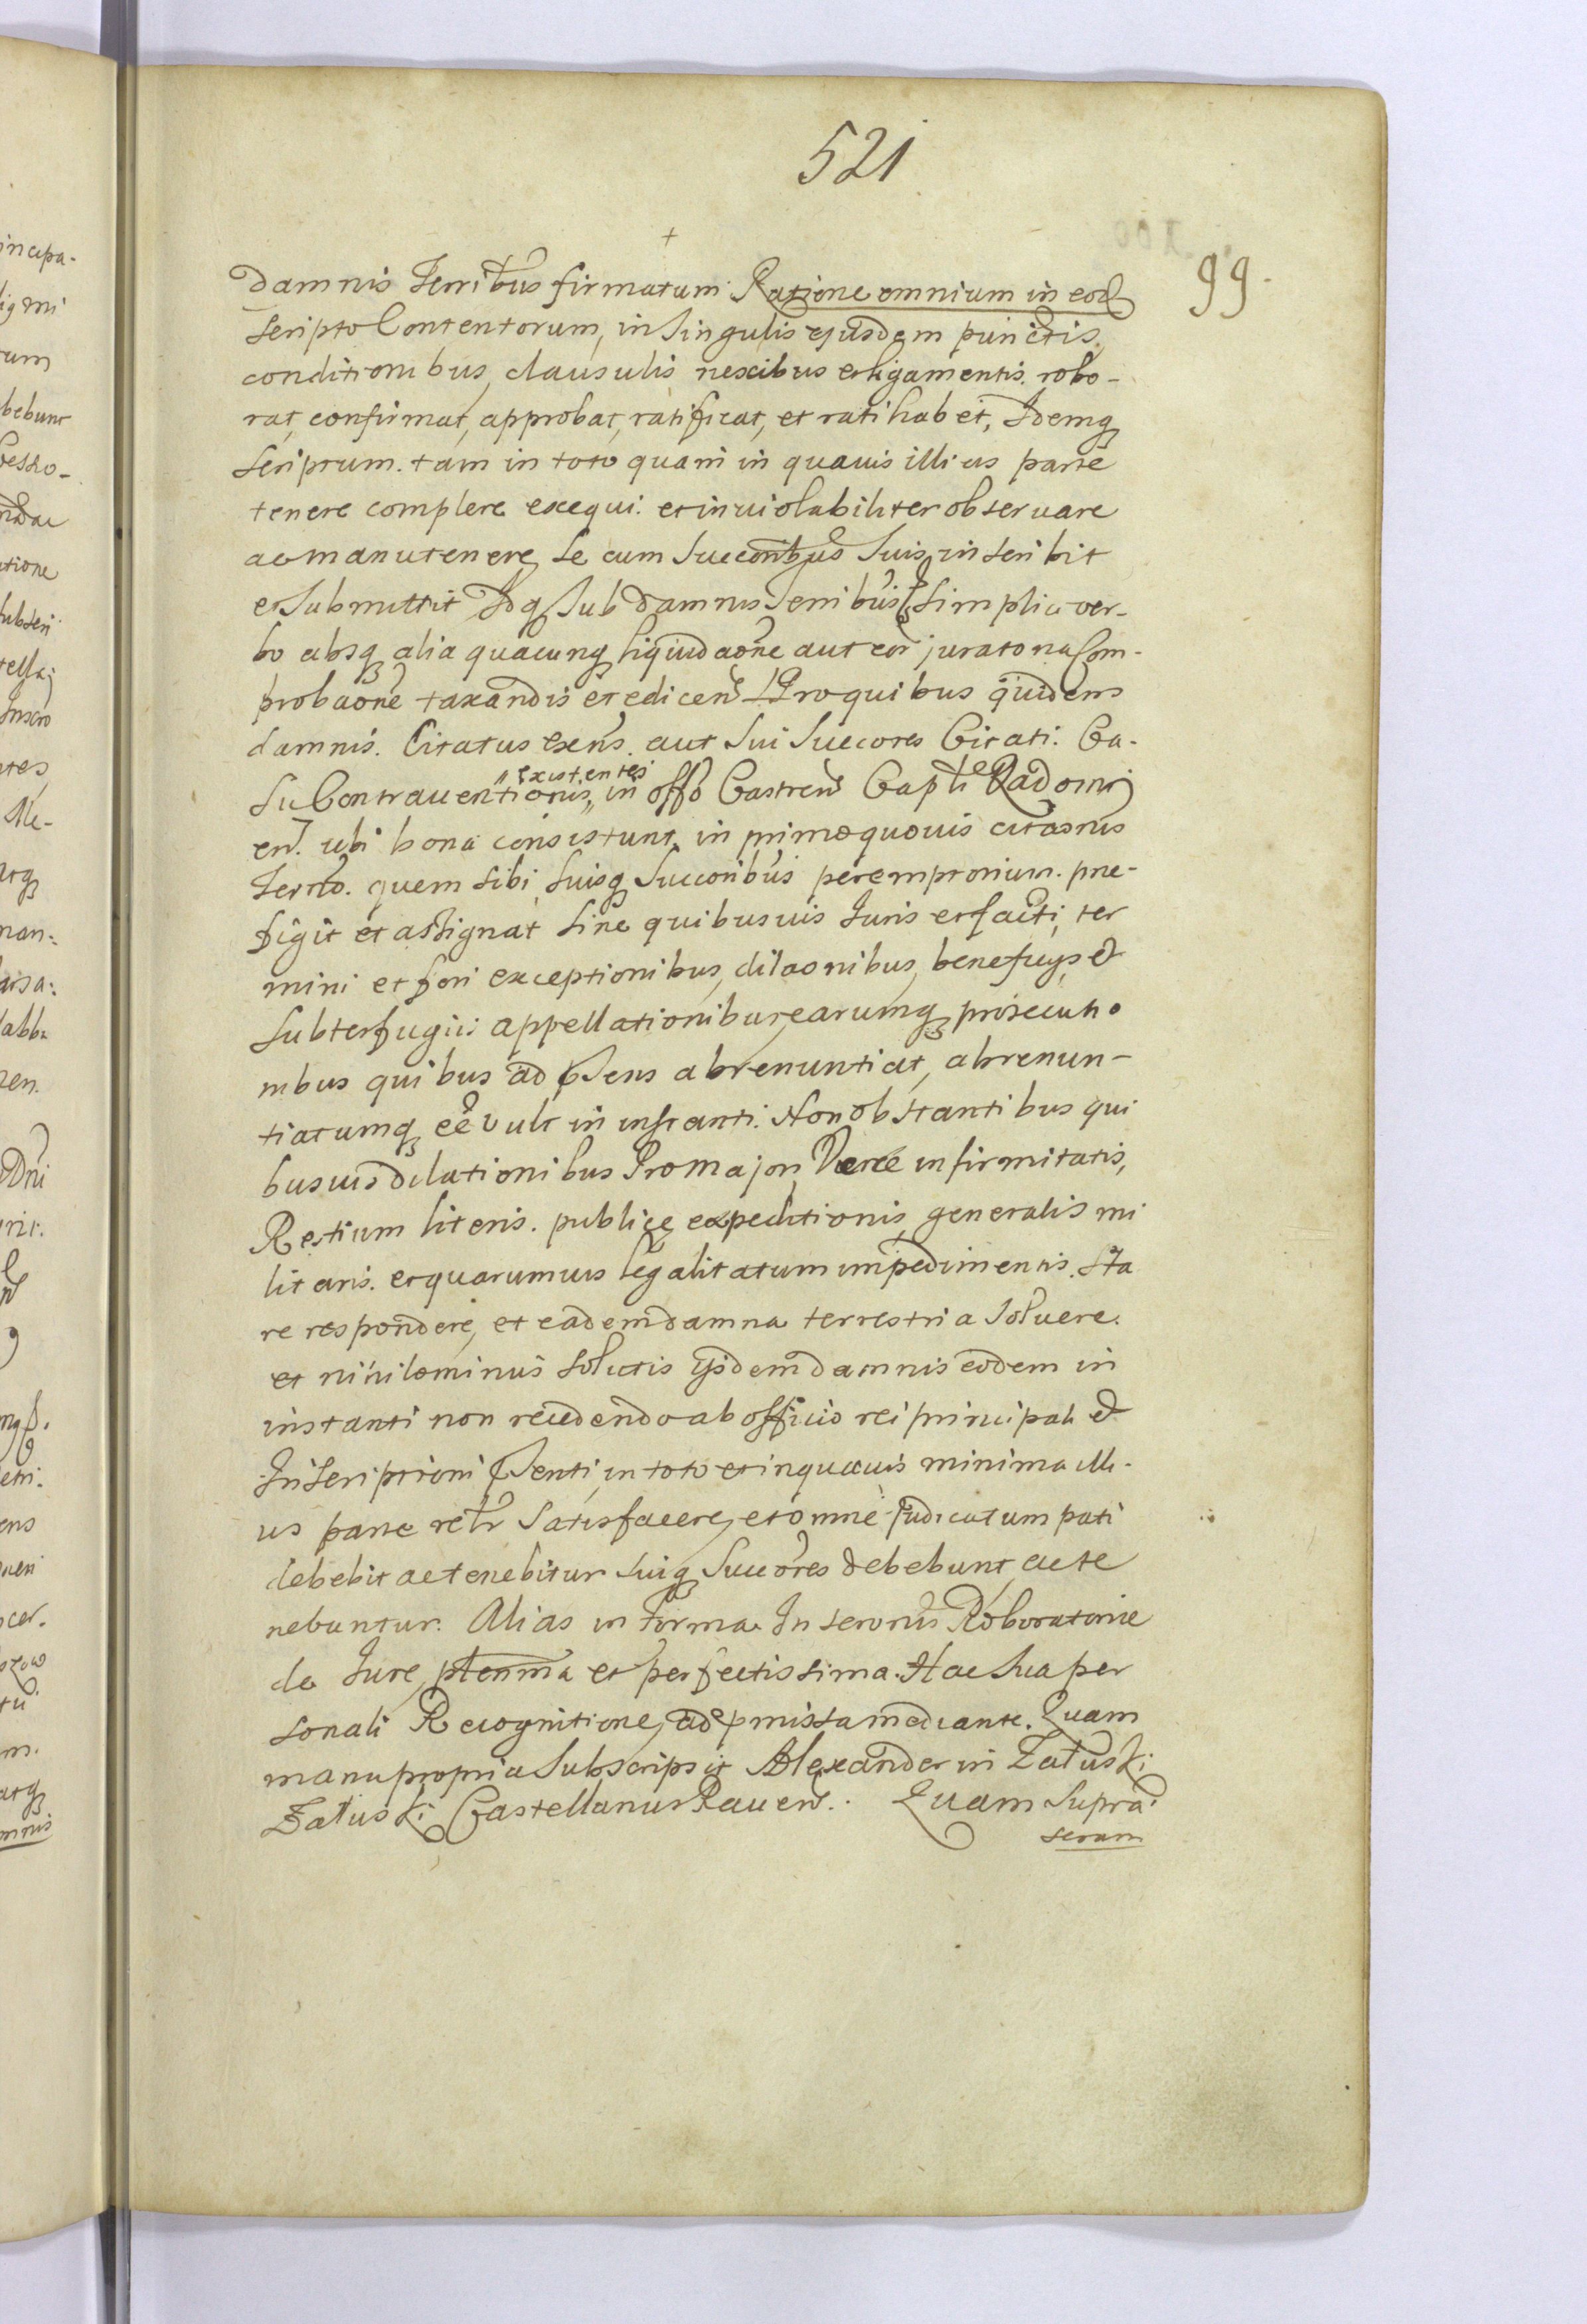 521
99.
damnis Terribus firmatum Ratione omnium in eod
scripto Contentorum, in Singulis ejusdem punctis,
conditionibus, clausulis nexibus et ligamentis robo-
rat, confirmat, approbat, ratificat, et ratihabet, Idemq
scriptum. tam in toto quam in quavis illius parte
tenere complere exequi. et inviolabiliter observare
ac manutenere, se cum Succoribus Suis inscribit
et Submittit Idq Sub damnis Terribus simplici ver-
bo absq alia quacunq liquidaone aut cor juratoria Com-
probaone taxandis et edicen Pro quibus quidem
damnis. Citatus exens. aut Sui Succores Citati. Ca-
existentes
su Contraventionis, in offo Castren Capli Radomi
en. ubi bona consistunt in primo quovis citaonis
Termo. quem sibi, Suisq Succoribus peremptorium. prae-
figit et assignat sine quibusvis Juris et facti, ter
mini et fori exceptionibus, dilaonibus, beneficys et
subterfugiis appellationibus, earumq prosecutio
nibus quibus ad psens abrenuntiat, abrenun-
tiatumq ee vult in instanti. Non obstantibus qui
busvis dilationibus Pro majori, Verae infirmitatis,
Restium literis. publice expeditionis, generalis mi
litaris. et quarumvis legalitatum impedimentis. Sta
re respondere, et eadem damna terrestria Solvere.
et nihilominus solutis ijsdem damnis eodem in
instanti non recedendo ab officio rei principali et
Inscriptioni psenti, in toto et in quavis minima illi-
us parte retr Satisfacere, et omne Judicatum pati
debebit ac tenebitur Suiq Succores debebunt, ac te
nebuntur. Alias in forma Inscronis Roboratoriae
de Jure plenma et perfectissima. Hac Sua per
sonali Recognitione, ad pmissa mediante. Quam
manu propria Subscripsit Alexander in Załuski
Załuski Castellanus Raven. Quam Supra
scram